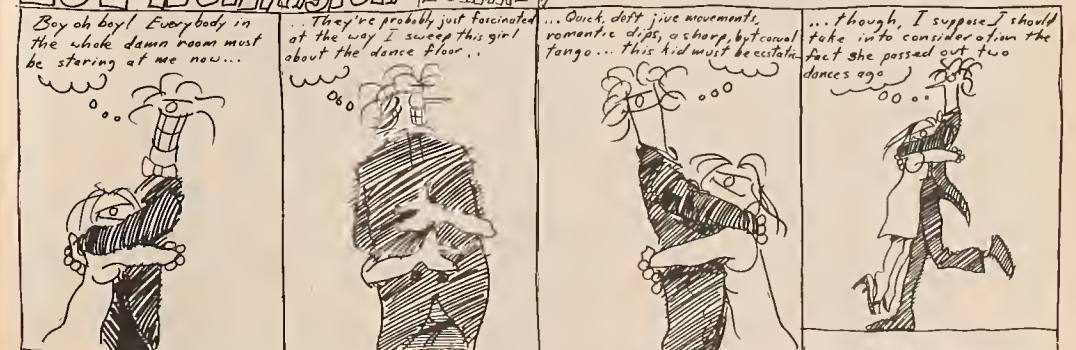 Boy oh boy! Everybody in
the whole damn room must
be staring at me now...
.. They're probably just fascinated
at the way I sweep this girl
about the dance floor..
... Quick, deft jive movements,
romantic dips, a sharp, but casual
tango... this kid must be ecstatic
... though, I suppose I should
take into consideration the
fact she passed out two
dances ago